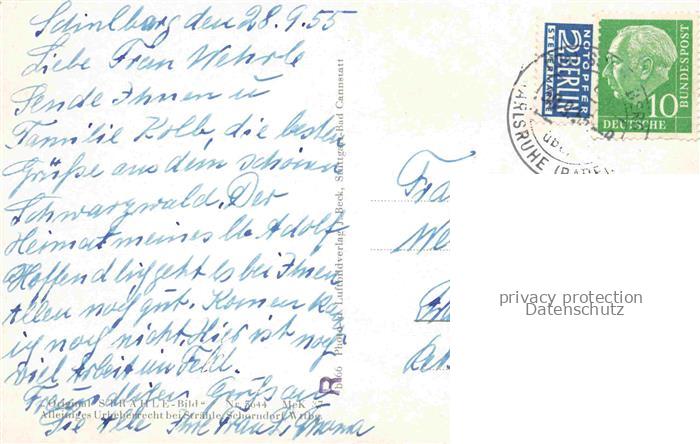 den 28.9.55
Liebe Frau Wehrle
Sende Ihnen u
Familie Kolb, die besten
Grüße aus dem schönen
Schwarzwald. Der
Heimat meines lb. Adolf
Hoffendlich geht es bei Ihnen
Allen noch gut. Komen
ich noch nicht. Hier ist noch
viel Arbeit im Feld.
Grüße an
Sie Alle Ihre
"Original STRÄHLE-Bild" Nr. 5644
Alleiniges Urheberrecht bei Strähle, Schorndorf Wttbg.
Luftbildverlag J. Beck, Stuttgart-Bad Cannstatt
R
NOTOPFER
2 BERLIN
STEUERMARKE
10
DEUTSCHE
BUNDESPOST
KARLSRUHE (BADEN)
über
Fra
We
privacy protection
Datenschutz